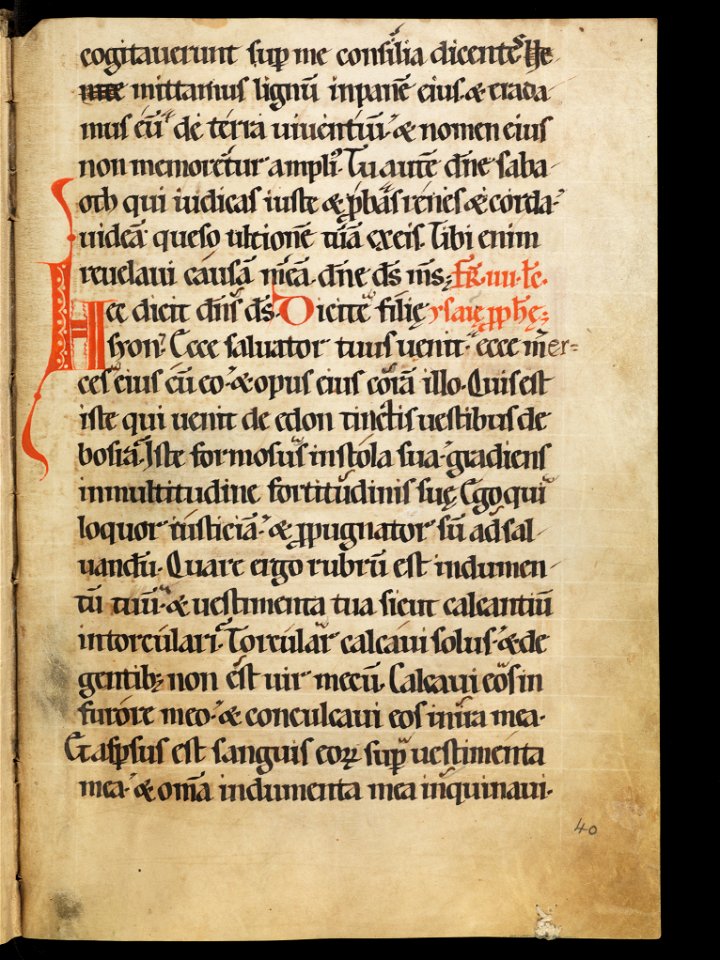 cogitauerunt sup̄ me consilia dicentes
mittamus lignū inpanē eius ⁊ erada
mus eū de terra uiuentiū ⁊ nomen eius
non memoretur ampli᾿ Tu autē dn̄e saba
oth qui iudicas iuste ⁊ p̄bas renes ⁊ corda
uideā queso ultionē tuā exeis. Tibi enim
reuelaui causā meā. dn̄e ds̄ ms̄; Fr̄. uii. Lc̄.
Hec dicit dn̄s ds̄. Dicite filię ysaię ꝓph̄ę;
syon. Ecce saluator tuus uenit. ecce mer-
ces eius cū eo. ⁊ opus eius corā illo. Quis est
iste qui uenit de edon tinctis uestibus de
bosra. Iste formosus instola sua. gradiens
inmultitudine fortitudinis suę. Ego qui
loquor iusticiā. ⁊ ꝓpugnator sū ad sal
uandū. Quare ergo rubrū est indumen
tū tuū. ⁊ uestimenta tua sicut calcantiū
intorculari. Torcular calcaui solus. ⁊ de
gentibꝫ non est uir mecū. Calcaui eos in
furore meo. ⁊ conculcaui eos inira mea.
Et asp̄sus est sanguis eoꝝ sup̄ uestimenta
mea. ⁊ om̄a indumenta mea inquinaui.
40